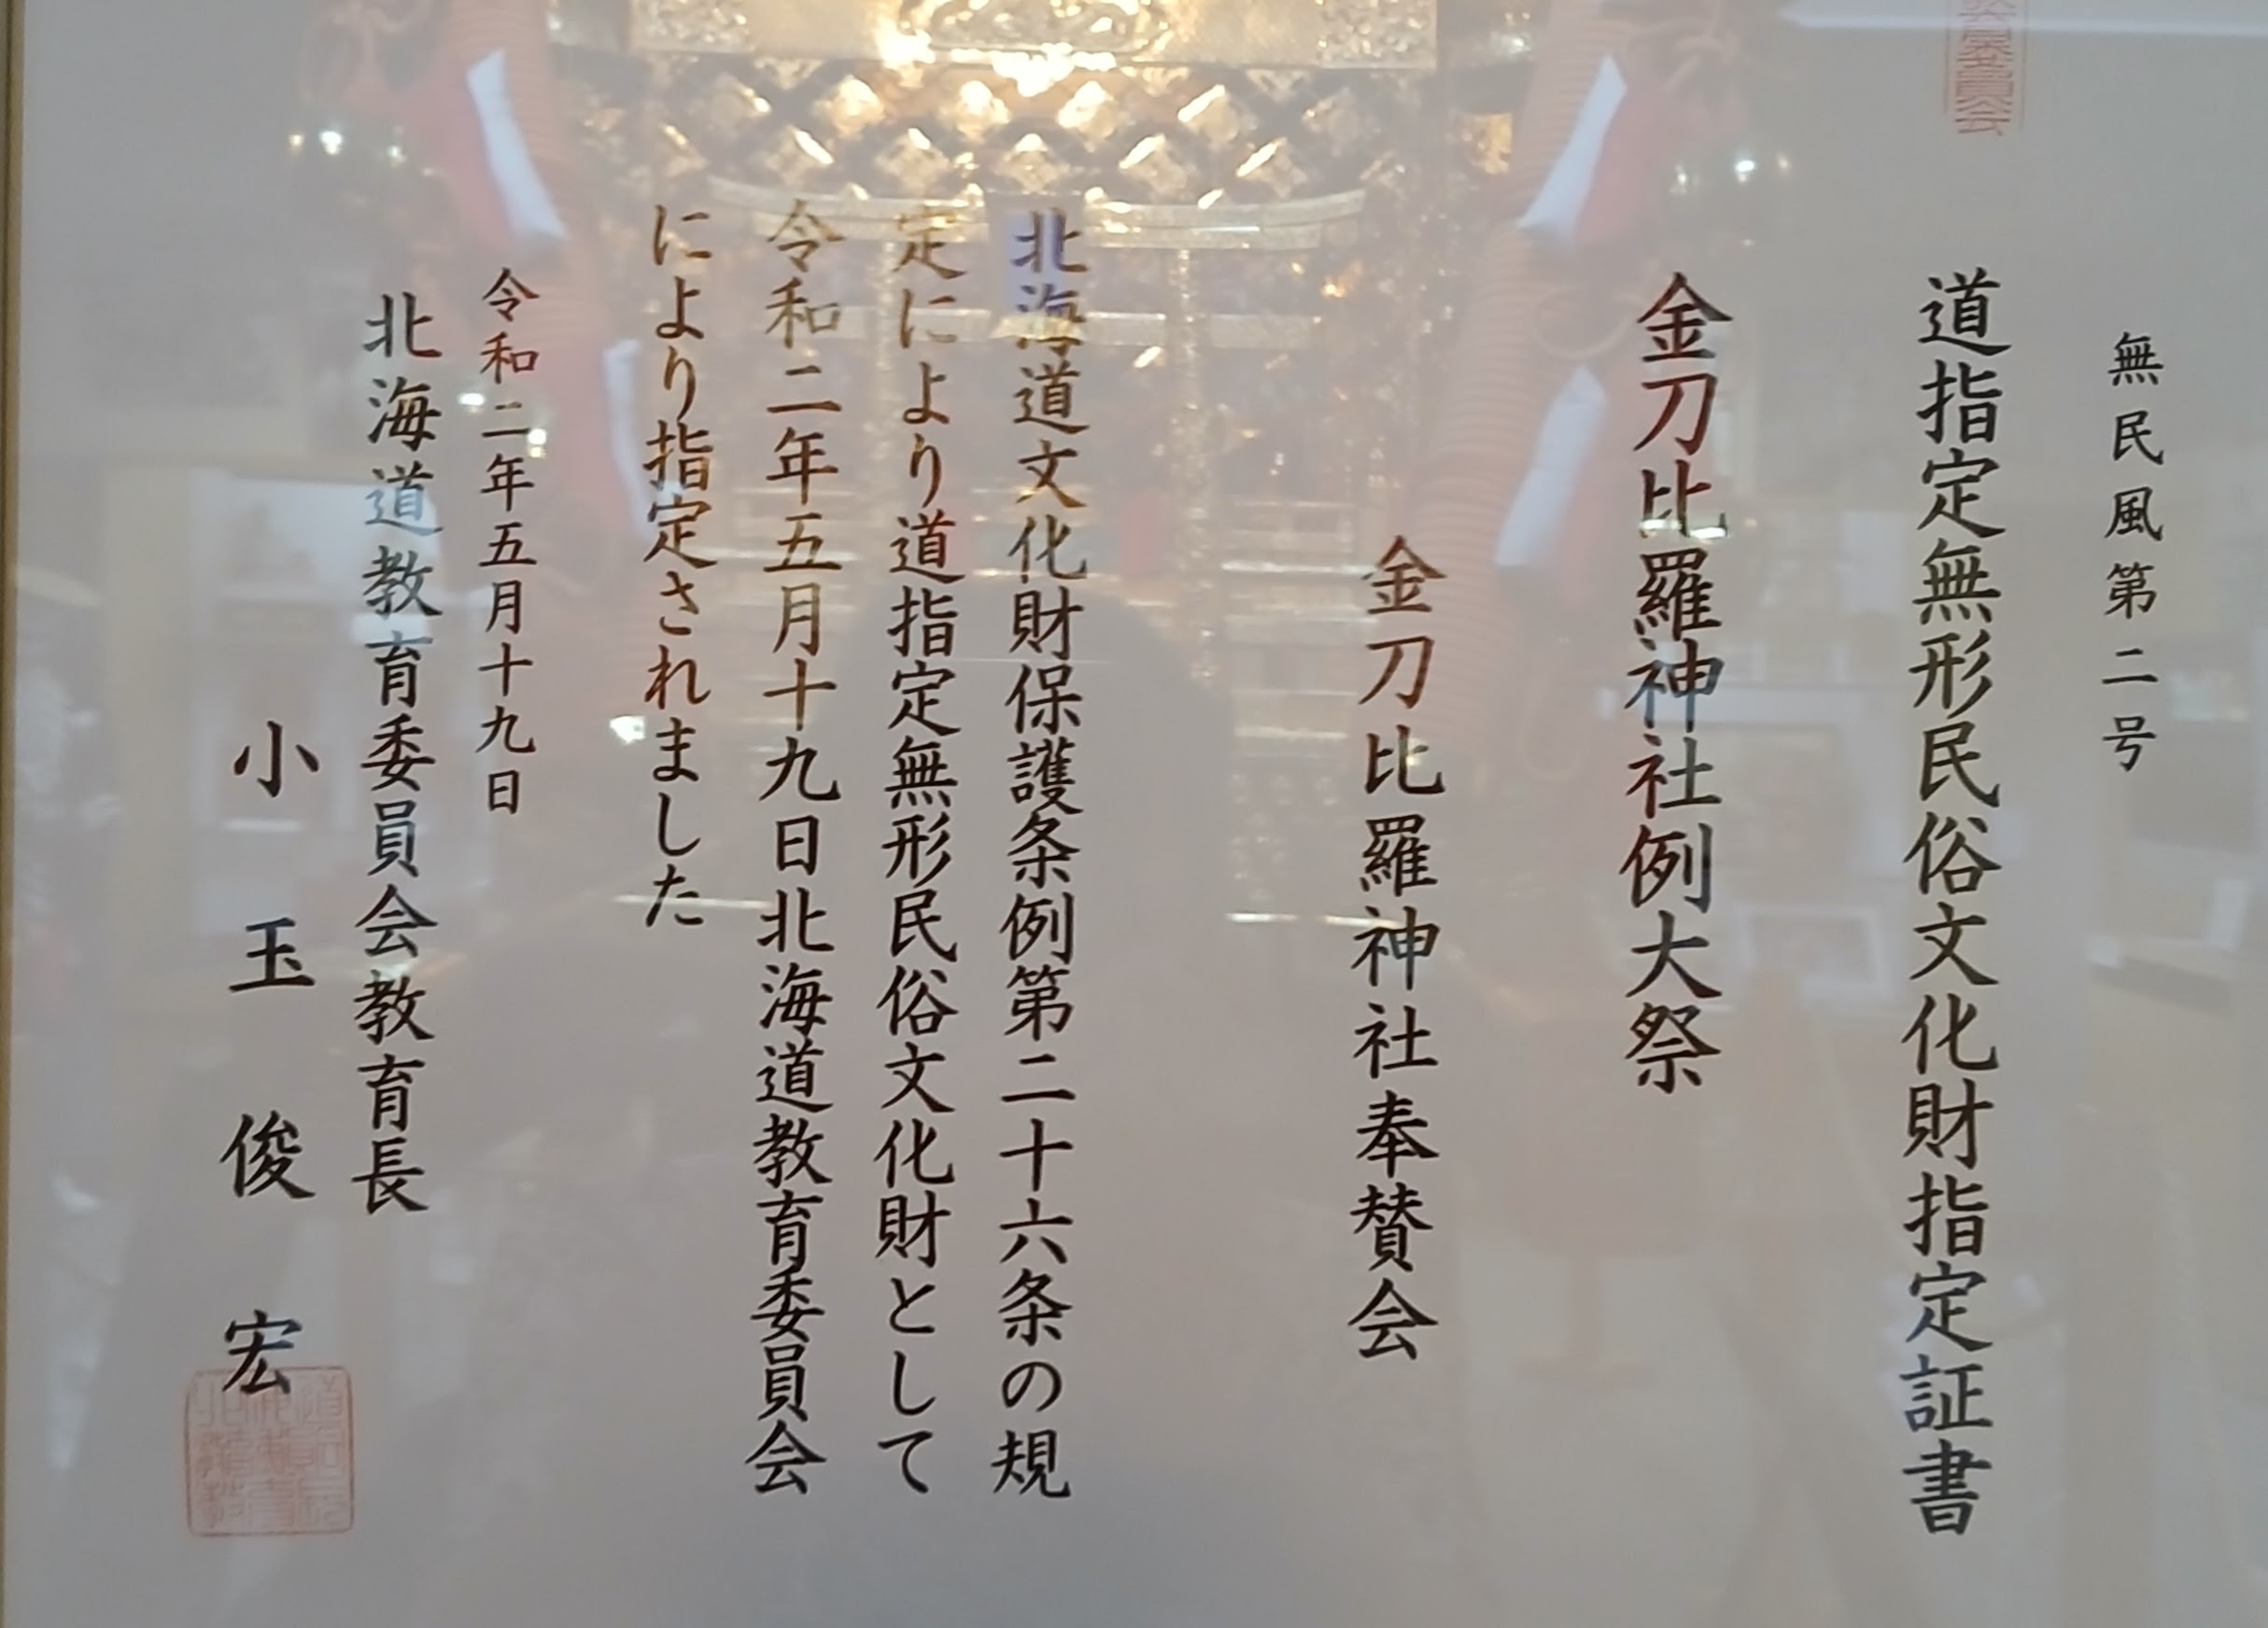 無民風第二号
道指定無形民俗文化財指定証書
金刀比羅神社例大祭
金刀比羅神社奉賛会
北海道文化財保護条例第二十六条の規
定により道指定無形民俗文化財として
令和二年五月十九日北海道教育委員会
により指定されました
令和二年五月十九日
北海道教育委員会教育長
小玉俊宏